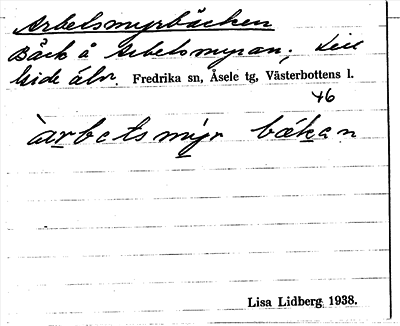 Arbetsmyrbäcken
Bäck å Arbetsmyran; till
Lide älv. Fredrika sn, Åsele tg, Västerbottens l.
46
àrbetsmy̱r bák̲an
Lisa Lidberg 1938.